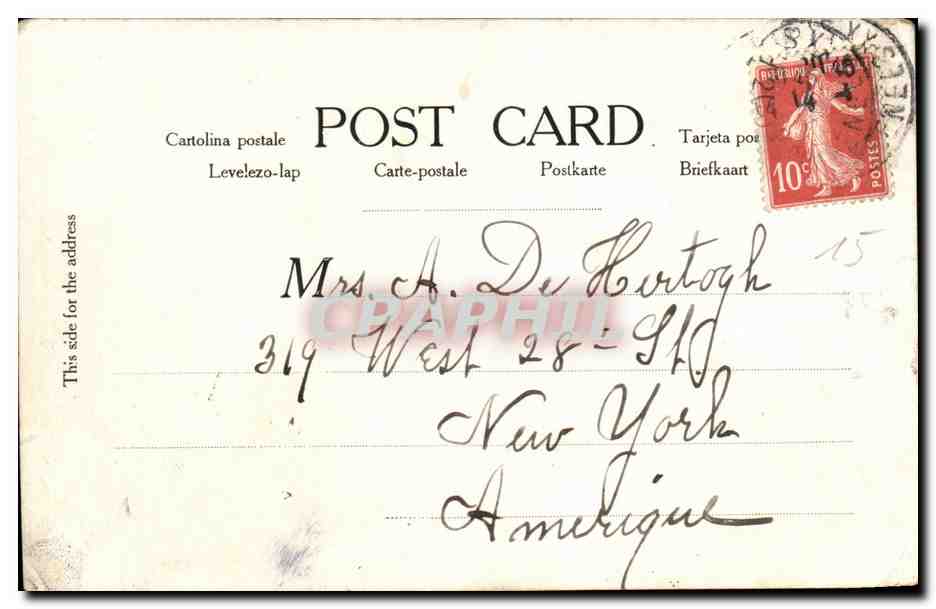 POST CARD
Cartolina postale
Tarjeta pos
Levelezo-lap Carte-postale Postkarte Briefkaart
REPUBLIQUE
10c
POSTES
15
This side for the address
Mrs. A. De Hertogh
CPAPHIL
319 West 28 - St.
New York
Amerique